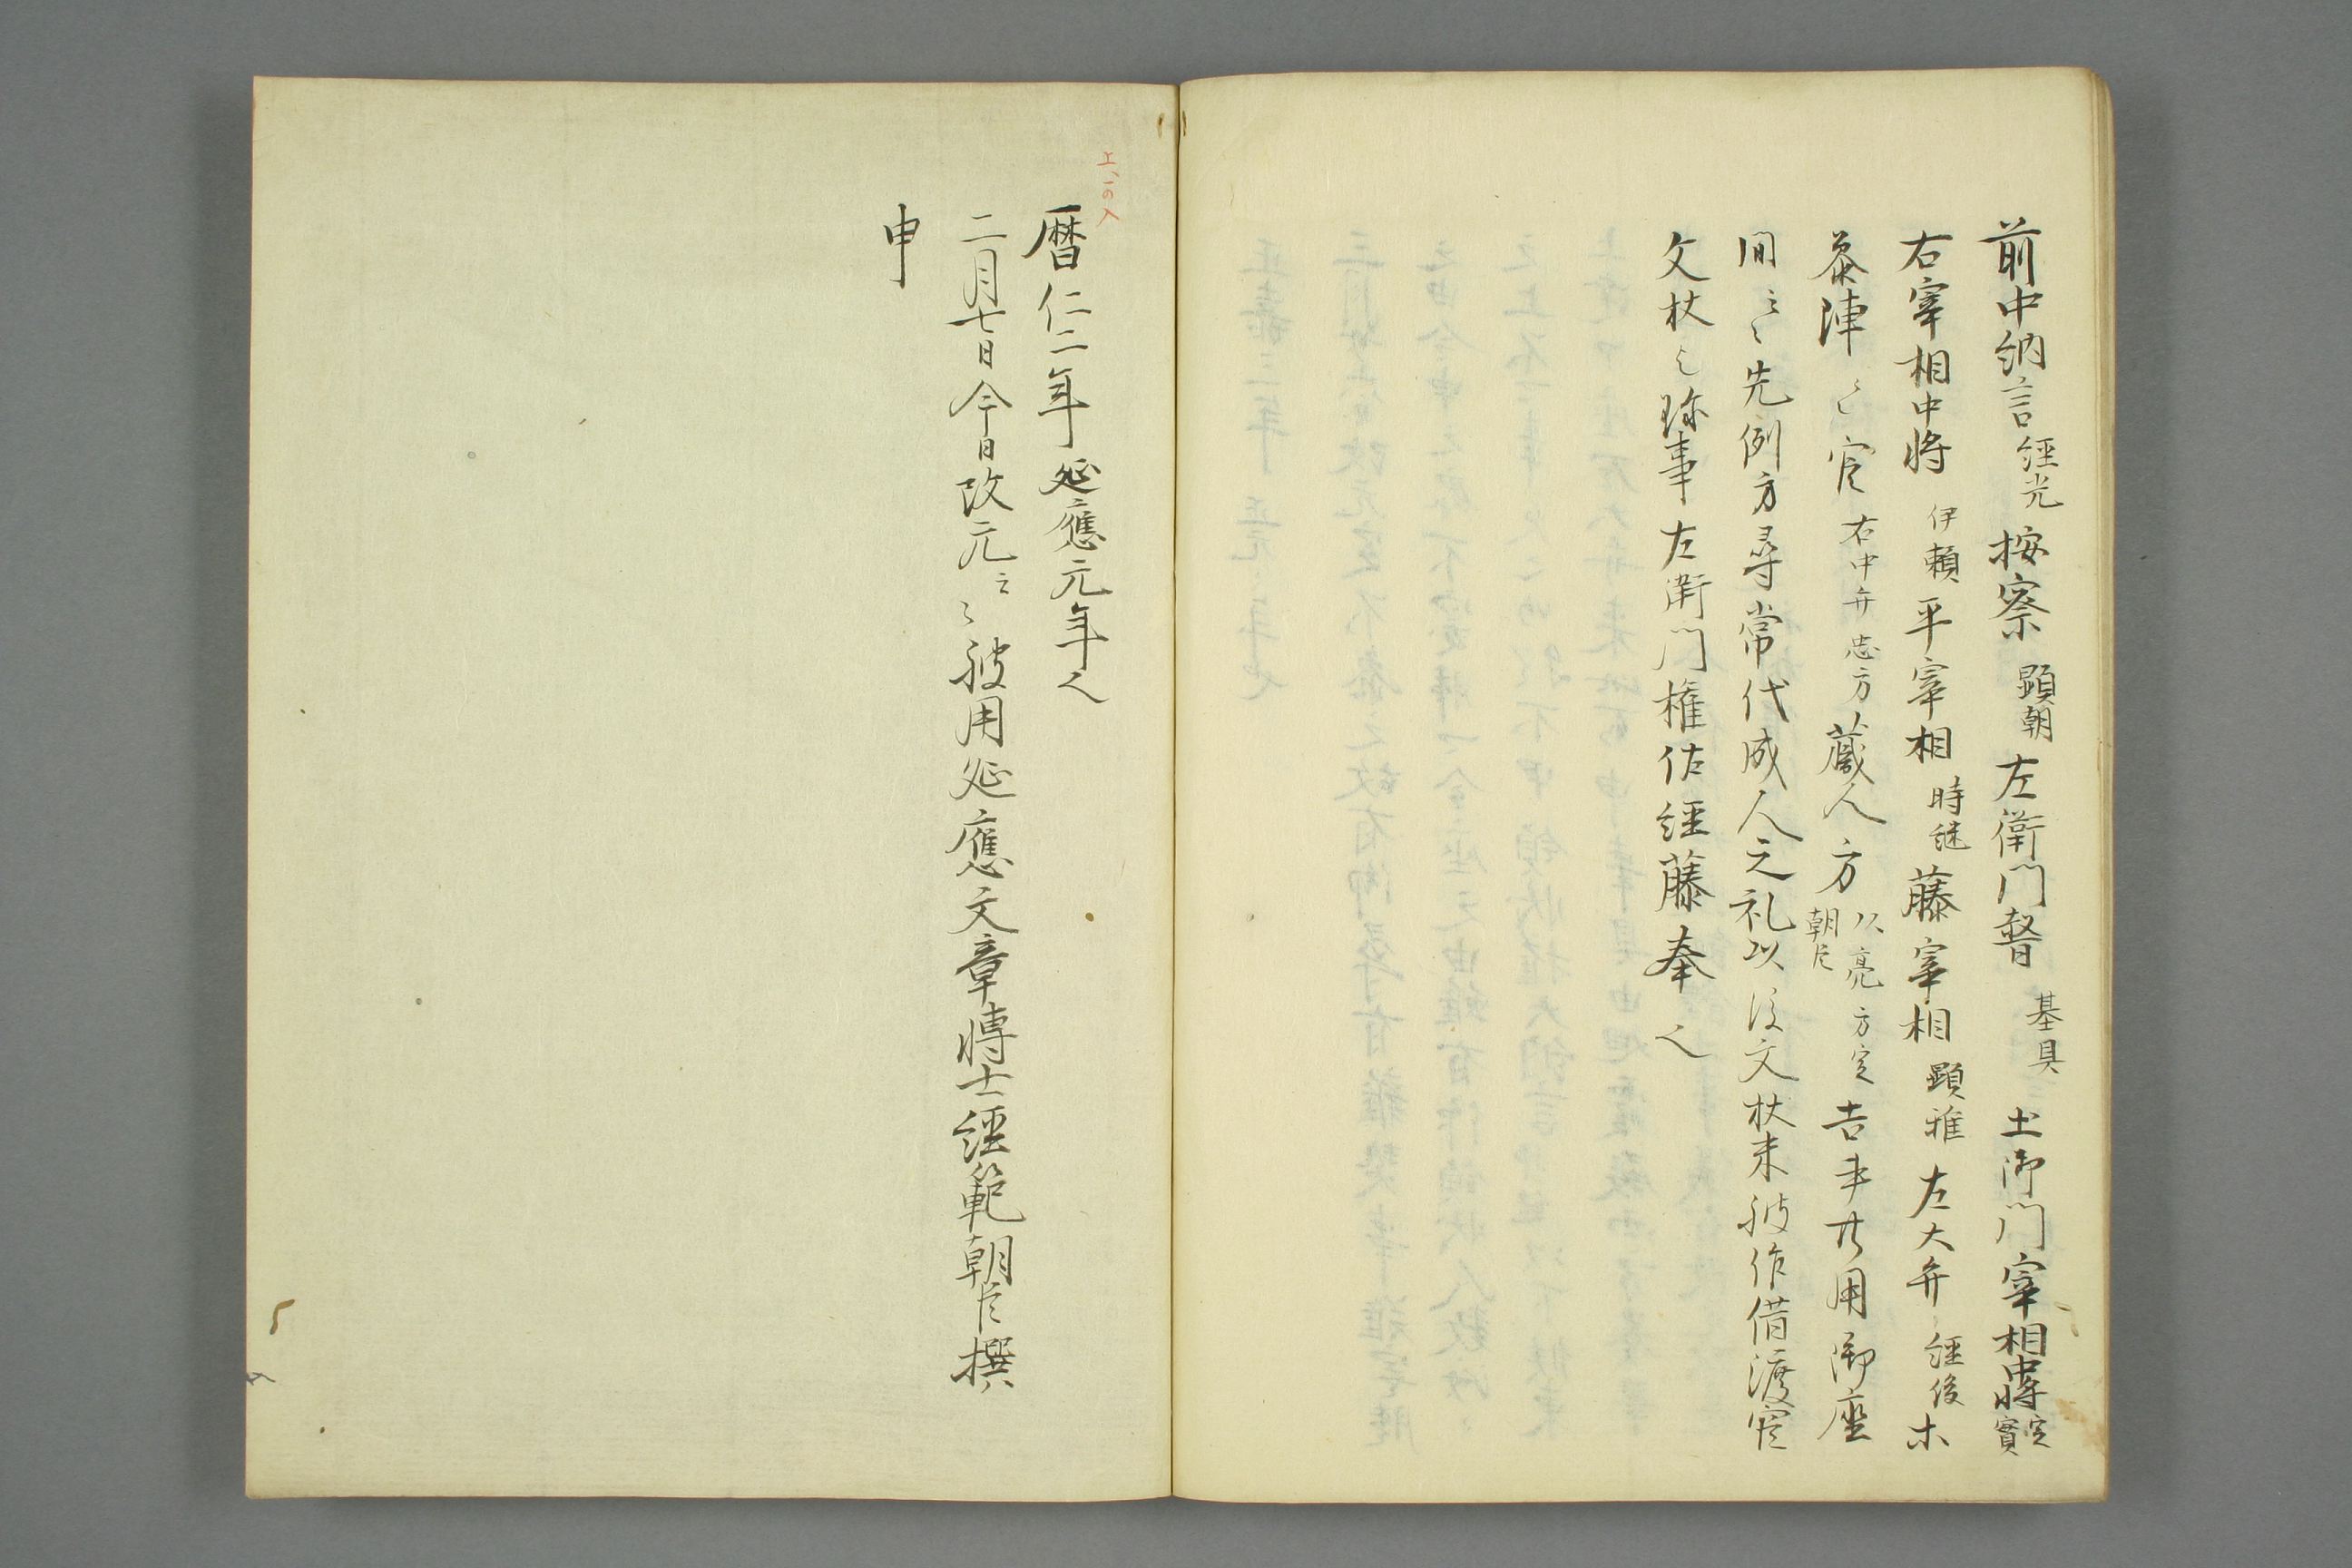 前中納言経光按察顕朝左衛門督基具土御門宰相中将定實
右宰相中将伊頼平宰相時継藤宰相顕雅左大弁経俊木
参陣云々官右中弁忠方蔵人方以亮方定朝臣吉事廾用御座
間云々先例方尋常代成人之礼以後文杖未被作借渡官
文杖云々珎事左衛門権佐経藤奉之
上ニアル
暦仁二年延應元年也
二月七日今日改元云々被用延應文章博士経範朝臣撰
申